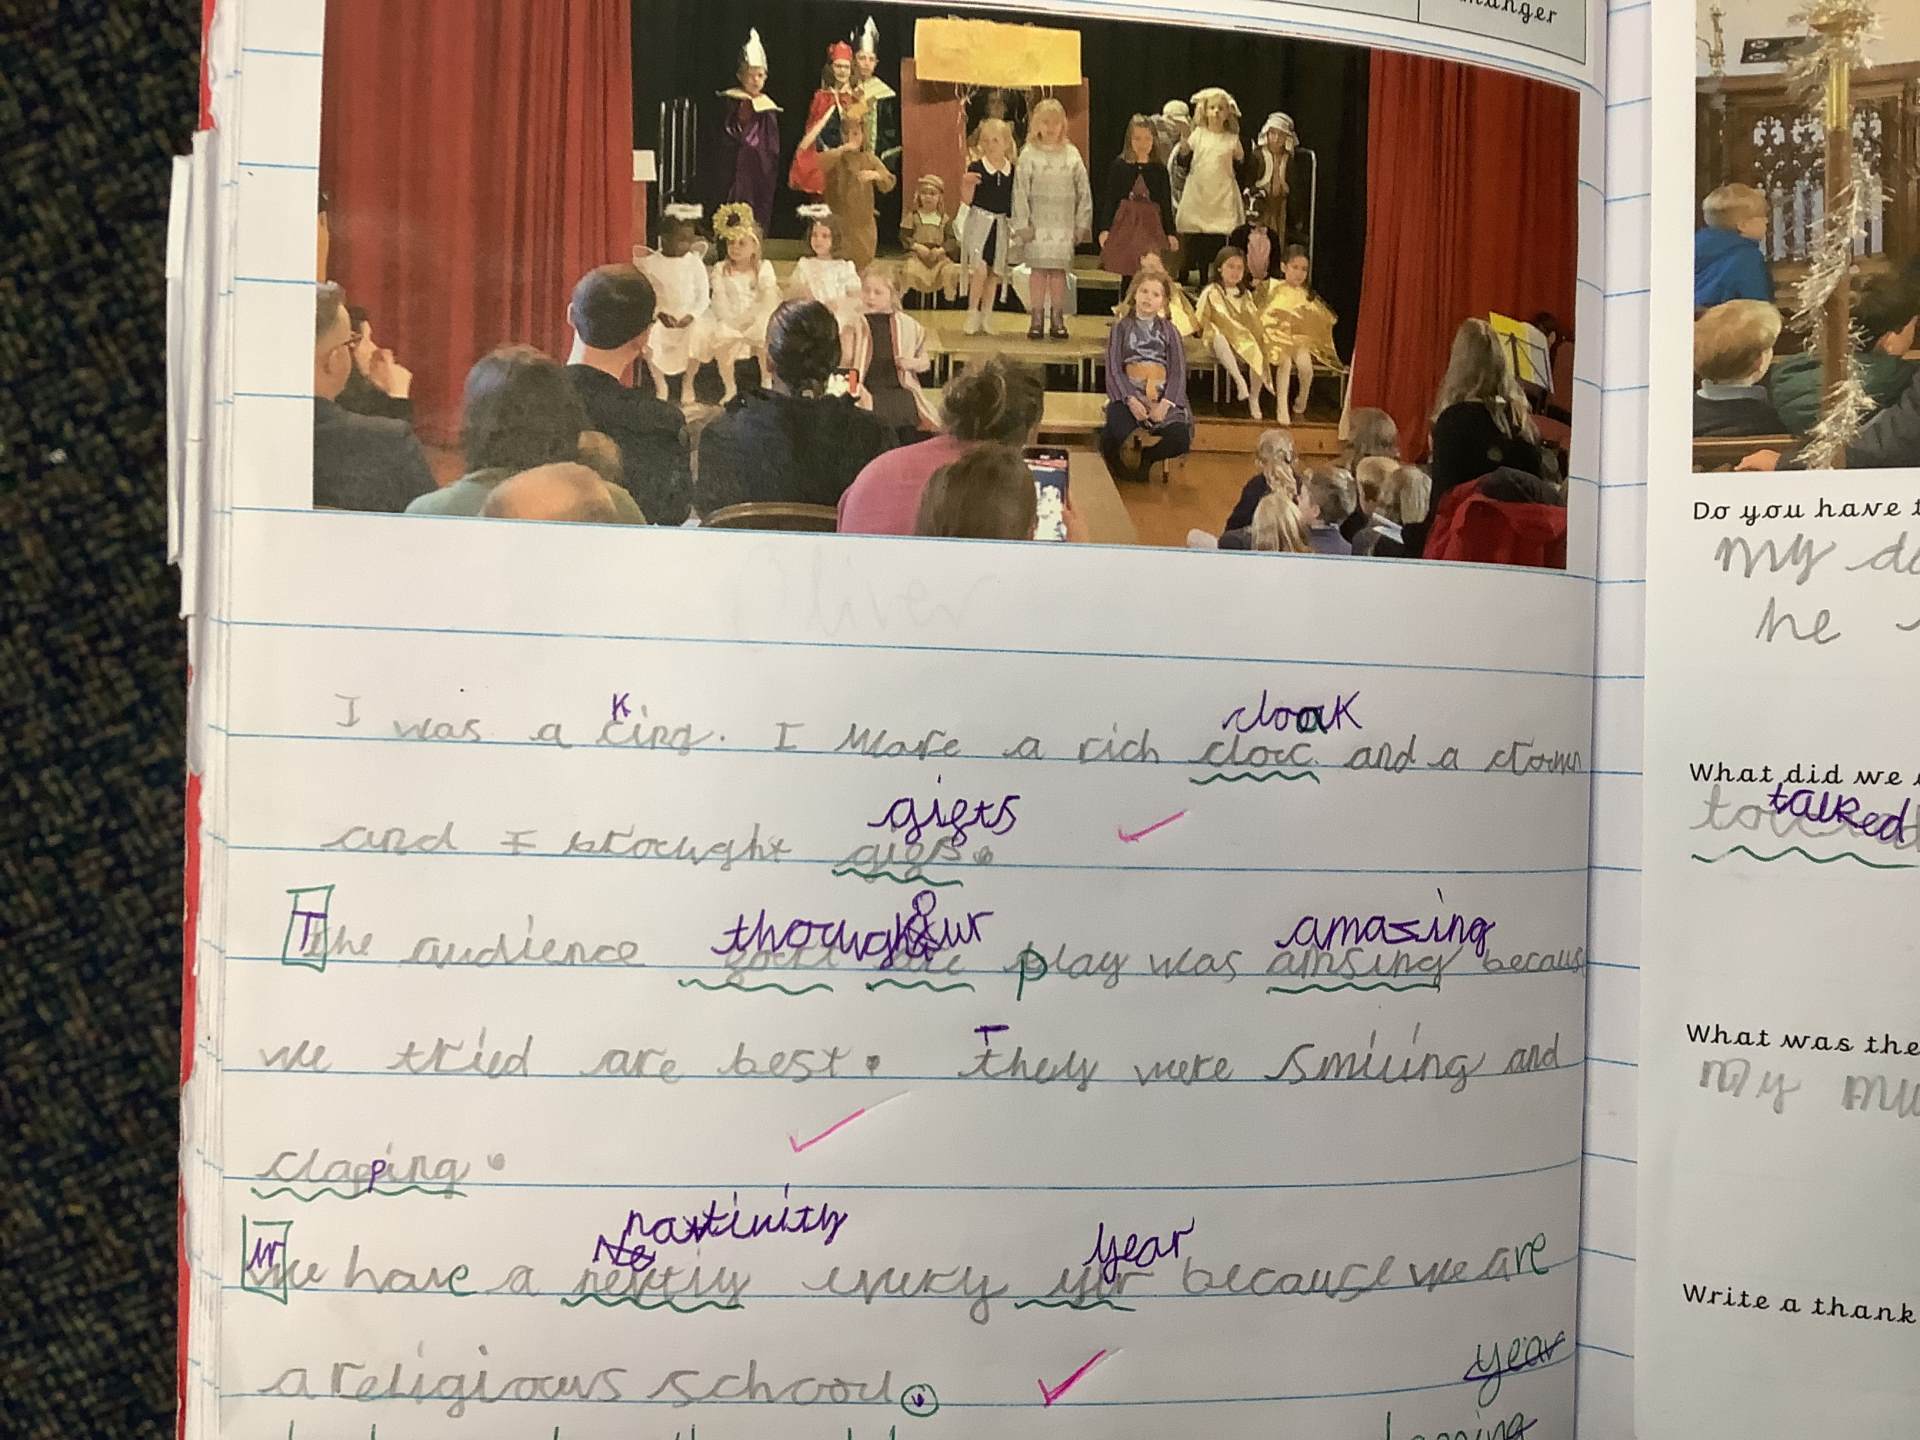 manger
K cloak
I was a cing. I ware a rich clocc and a crown
gifts
and I brought gigs.
T thought our amazing
The audience play was amsing because
T
we tried are best. they were smiling and
p
claping.
nativity year
W
we have a every yir because we are
a religious school.
year
Do you have
my
he
What did we
talked
What was the
my mu
Write a thank